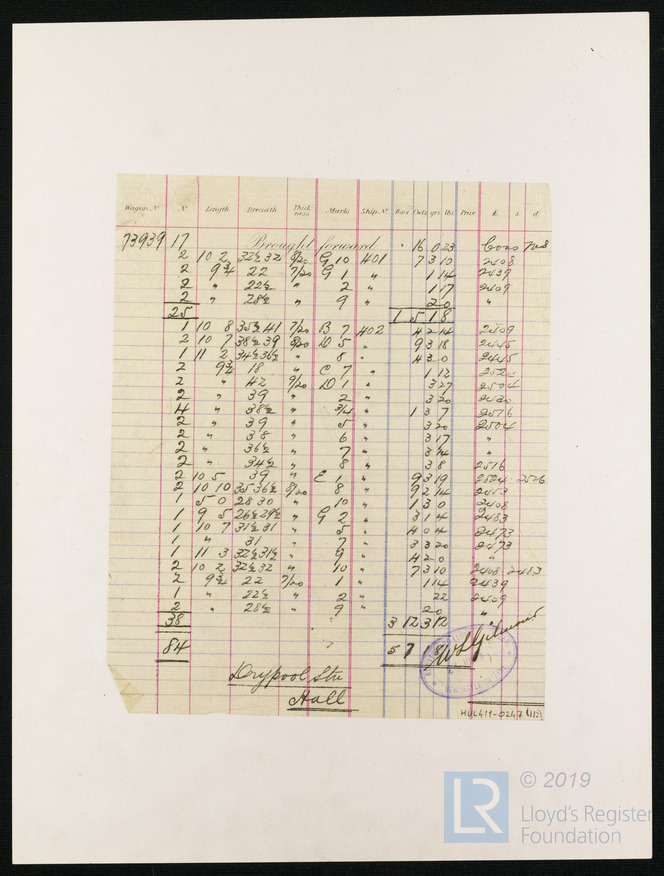 Wagon No No Length Breadth Thick ness Mark Ship No Tons Cwts qrs lbs Price £ s d
73939 17 Brought forward 16 0 23
2 10 2 32½ 32 8/20 G 10 401 7 3 10 2408
2 9¾ 22 7/20 G 1 " 1 14 2439
2 " 22½ " 2 " 1 17 2409
2 " 28½ " 9 " 2 0 "
25 1 5 1 8
1 10 8 35½ 41 7/20 B 7 402 4 2 14 2409
2 10 7 38½ 39 8/20 D 5 " 9 3 18 2445
1 11 2 34½ 36½ " 8 " 4 3 0 2445
2 9¾ 18 " C 7 " 1 12
2 " 42 9/20 D 1 " 3 27 2504
2 " 39 " 2 " 3 20 2430
4 " 38½ " 3/4 " 1 3 7 2516
2 " 39 " 5 " 3 20 2504
2 " 38 " 6 " 3 17 "
2 " 36½ " 7 " 3 14 "
2 " 34½ " 8 " 3 8 2516
2 10 5 39 " E 1 " 9 3 19 2524 2526
2 10 10 35 36½ 8/20 8 " 9 2 14 2453
1 5 0 28 30 " 10 " 1 3 0 2408
1 9 5 26½ 29½ " G 2 " 3 1 4 2483
1 10 7 31½ 31 " 5 " 4 0 4 2473
1 " 31 " 7 " 3 3 20 2473
1 11 3 32½ 31½ " 9 " 4 2 0 "
2 10 2 32½ 32 " 10 " 7 3 10 2408 2413
2 9¾ 22 7/20 1 " 1 14 2439
1 " 22½ " 2 " 22 2409
2 " 28½ " 9 " 2 0 "
38 3 12 3 12
84 5 7
Drypool
Hull
HUL419-0247 (112)
© 2019
LR Lloyd's Register
Foundation